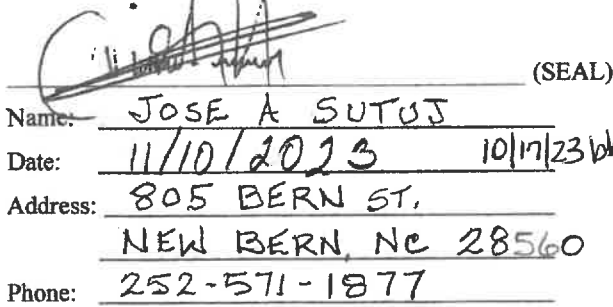 (SEAL)
Name: JOSE A SUTUJ
Date: 11/10/2023 10/17/23
Address: 805 BERN ST.
NEW BERN, NC 28560
Phone: 252-571-1877